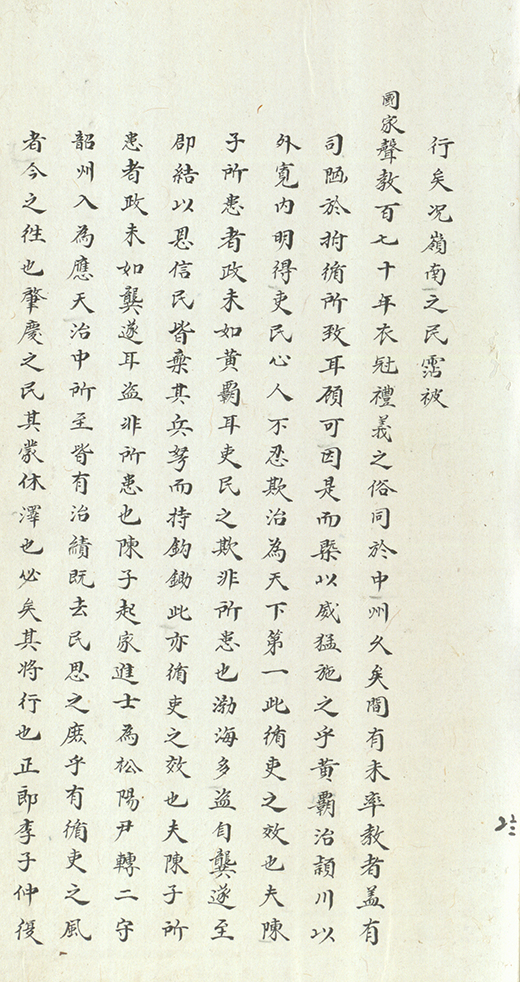 行矣况嶺南之民霑被
國家聲教百七十年衣冠禮義之俗同於中州久矣間有未率教者盖有
司陋於拊循所致耳顧可因是而槩以威猛施之乎黄霸治潁川以
外寛内明得吏民心人不忍欺治為天下第一此循吏之效也夫陳
子所患者政未如黄霸耳吏民之欺非所患也渤海多盗自龔遂至
郡結以恩信民皆棄其兵弩而持鈎鋤此亦循吏之效也夫陳子所
患者政未如龔遂耳盗非所患也陳子起家進士為松陽尹轉二守
韶州入為應天治中所至皆有治績既去民思之庶乎有循吏之風
者今之徃也肇慶之民其蒙休澤也必矣其将行也正郎李子仲復